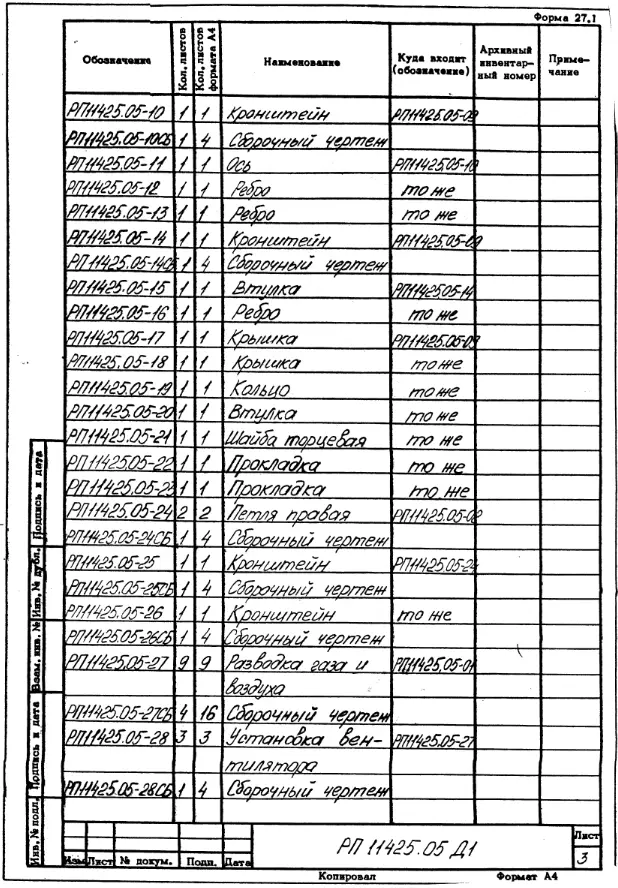 Форма 27.1
Обозначение Кол. листов Кол. листов формата А4 Наименование Куда входит (обозначение) Архивный инвентарный номер Примечание
РП11425.05-10 1 1 Кронштейн РП11425.05-09
РП11425.05-10СБ 1 4 Сборочный чертеж
РП11425.05-11 1 1 Ось РП11425.05-10
РП11425.05-12 1 1 Ребро то же
РП11425.05-13 1 1 Ребро то же
РП11425.05-14 1 1 Кронштейн РП11425.05-09
РП11425.05-14СБ 1 4 Сборочный чертеж
РП11425.05-15 1 1 Втулка РП11425.05-14
РП11425.05-16 1 1 Ребро то же
РП11425.05-17 1 1 Крышка РП11425.05-09
РП11425.05-18 1 1 Крышка то же
РП11425.05-19 1 1 Кольцо то же
РП11425.05-20 1 1 Втулка то же
РП11425.05-21 1 1 Шайба торцевая то же
РП11425.05-22 1 1 Прокладка то же
РП11425.05-23 1 1 Прокладка то же
РП11425.05-24 2 2 Петля правая РП11425.05-08
РП11425.05-24СБ 1 4 Сборочный чертеж
РП11425.05-25 1 1 Кронштейн РП11425.05-24
РП11425.05-25СБ 1 4 Сборочный чертеж
РП11425.05-26 1 1 Кронштейн то же
РП11425.05-26СБ 1 4 Сборочный чертеж
РП11425.05-27 9 9 Разводка газа и РП11425.05-01
воздуха
РП11425.05-27СБ 4 16 Сборочный чертеж
РП11425.05-28 3 3 Установка вен- РП11425.05-27
тилятора
РП11425.05-28СБ 1 4 Сборочный чертеж
Инв. № подл. Подпись и дата Взам. инв. № Инв. № дубл. Подпись и дата
РП 11425.05 Д1
Лист
3
Изм Лист № докум. Подп. Дата
Копировал Формат А4